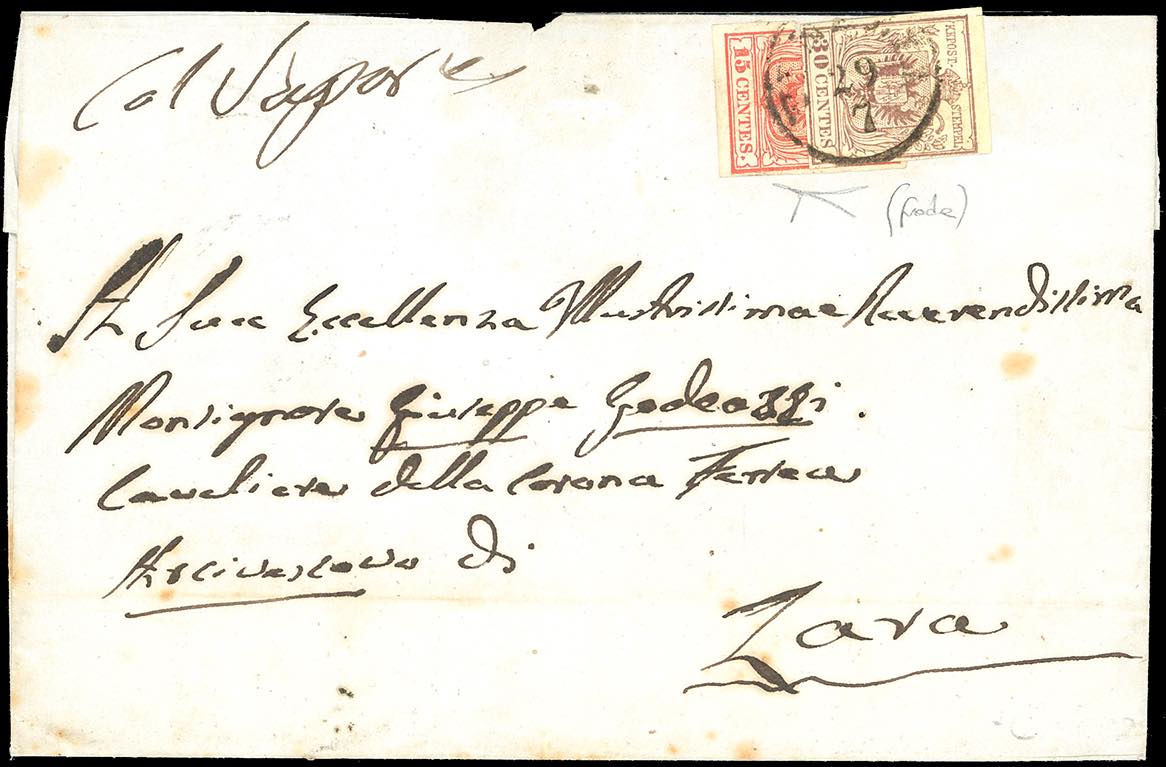 Col Vapore
15 CENTES.
30 CENTES
KKPOST-STEMPEL
29
7
(frode)
A Sua Eccellenza Illustrissima e Reverendissima
Monsignore Giuseppe Godeazzi.
Cavaliere della Corona Ferrea
Arcivescovo di
Zara